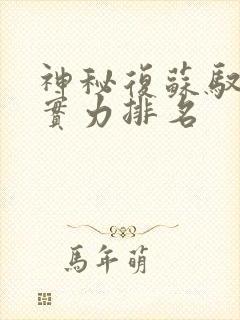 神秘復蘇馭
實力排名
馬年萌